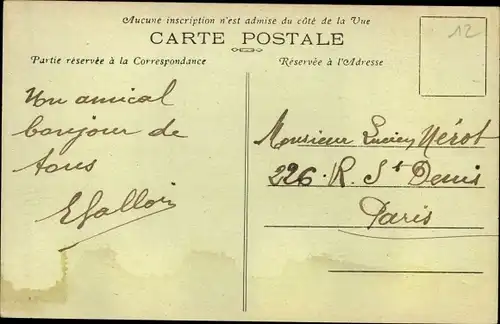 Aucune inscription n'est admise du côté de la Vue
CARTE POSTALE
Partie réservée à la Correspondance
Réservée à l'Adresse
12
Un amical
bonjour de
tous
EGallois
Monsieur Lucien Nérot
226. R. St Denis
Paris